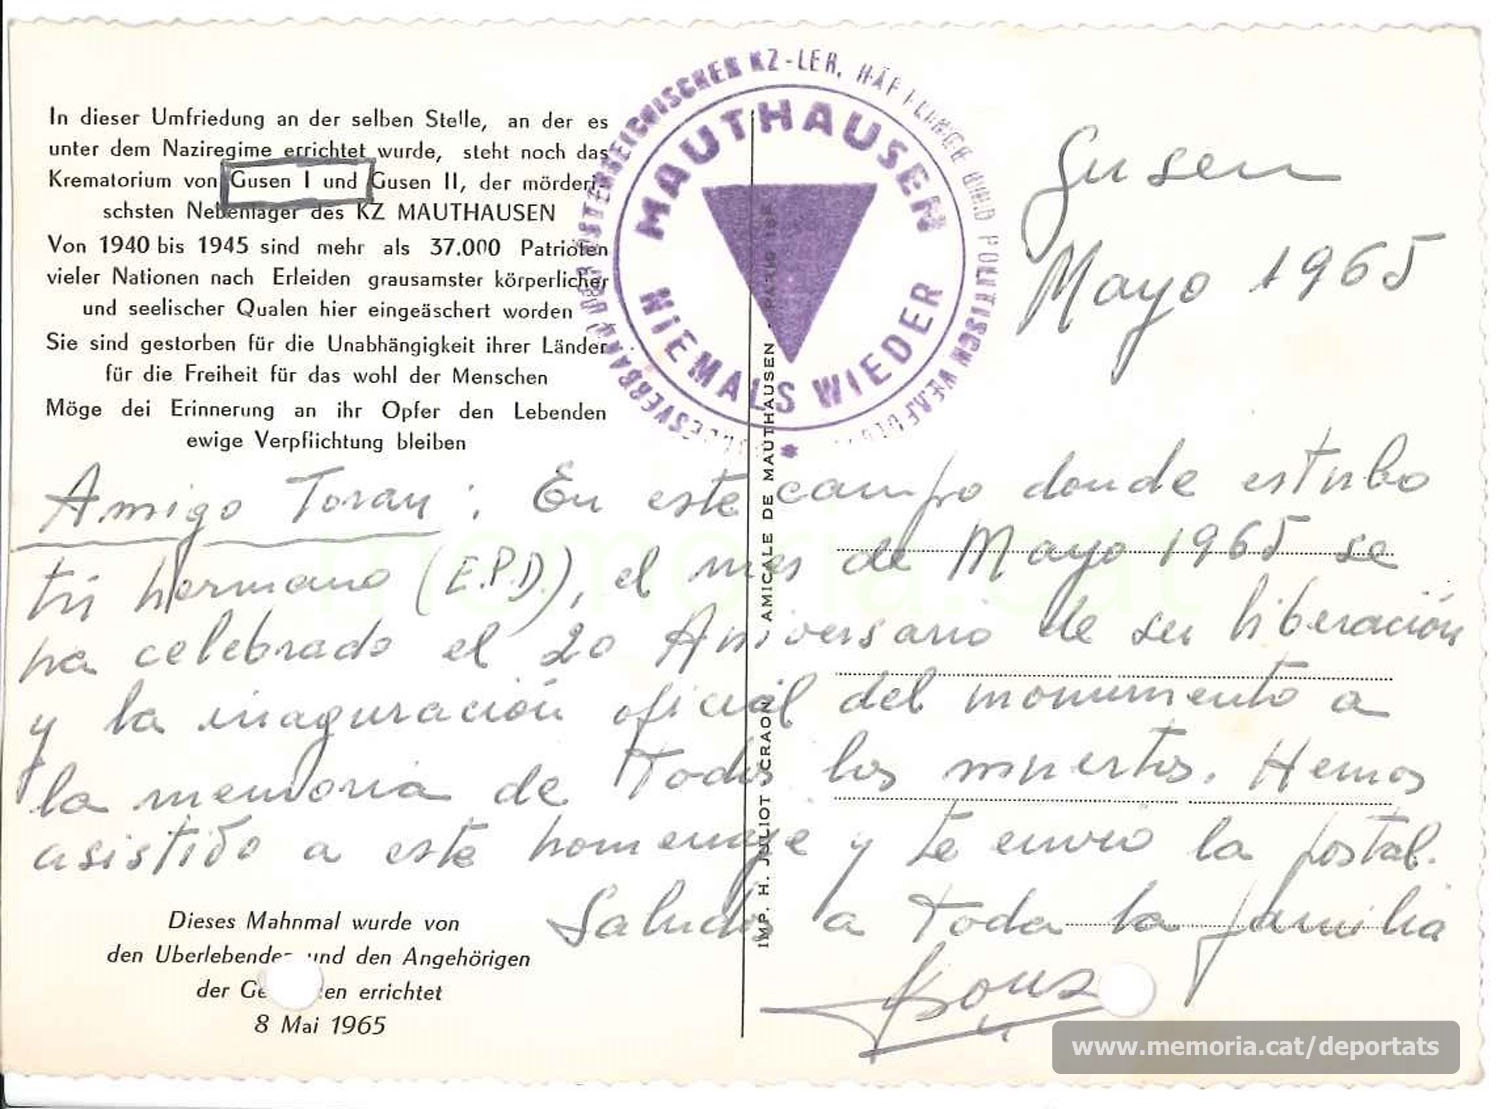 In dieser Umfriedung an der selben Stelle, an der es
unter dem Naziregime errichtet wurde, steht noch das
Krematorium von Gusen I und Gusen II, der mörderi-
schsten Nebenlager des KZ MAUTHAUSEN
Von 1940 bis 1945 sind mehr als 37.000 Patrioten
vieler Nationen nach Erleiden grausamster körperlicher
und seelischer Qualen hier eingeäschert worden
Sie sind gestorben für die Unabhängigkeit ihrer Länder
für die Freiheit für das wohl der Menschen
Möge dei Erinnerung an ihr Opfer den Lebenden
ewige Verpflichtung bleiben
KZ-LER, HÄFTLINGE UND POLITISCH
MAUTHAUSEN
NIEMALS WIEDER
Gusen
Mayo 1965
Amigo Toran: En este campo donde estubo
tú hermano (E.P.D.), el mes de Mayo 1965 se
ha celebrado el 20 Aniversario de su liberación
y la inaguración oficial del monumento a
la memoria de Todos los muertos. Hemos
asistido a este homenaje y te envio la postal.
Saludos a toda la familia
Dieses Mahnmal wurde von
den Uberlebenden und den Angehörigen
der en errichtet
8 Mai 1965
IMP. H. JULIOT - CRAON AMICALE DE MAUTHAUSEN -
www.memoria.cat/deportats
memoria.cat